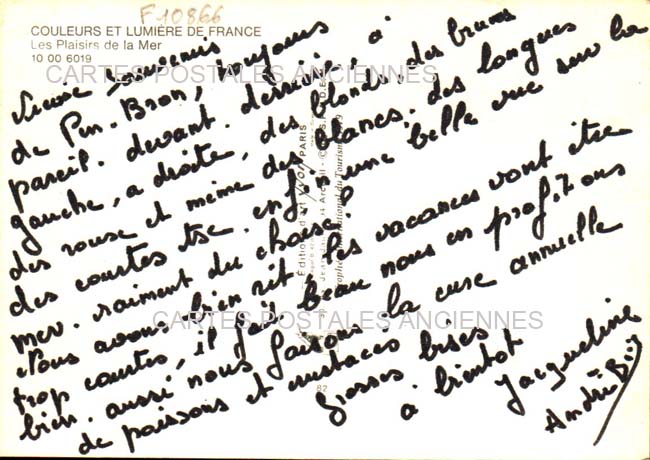 F10866
COULEURS ET LUMIÈRE DE FRANCE
Les Plaisirs de la Mer
10 00 6019
CARTES POSTALES ANCIENNES
souvenirs
de Pen-Bron, toujours
pareil. devant. derrière, à
gauche, a droite, des blonds, des bruns
des rouse et même des blancs. des longues
des courtes tse. enfin une belle vue sur la
mer. vraiment du choise!
Nous avons bien rit, les vacances vont être
trop courtes, il fait beau nous en profitons
bien. aussi nous faisons la cure annuelle
de poissons et crustacés
Grosses bises
à bientot
Jacqueline
André
CARTES POSTALES ANCIENNES
Editions d'art YVON PARIS
82